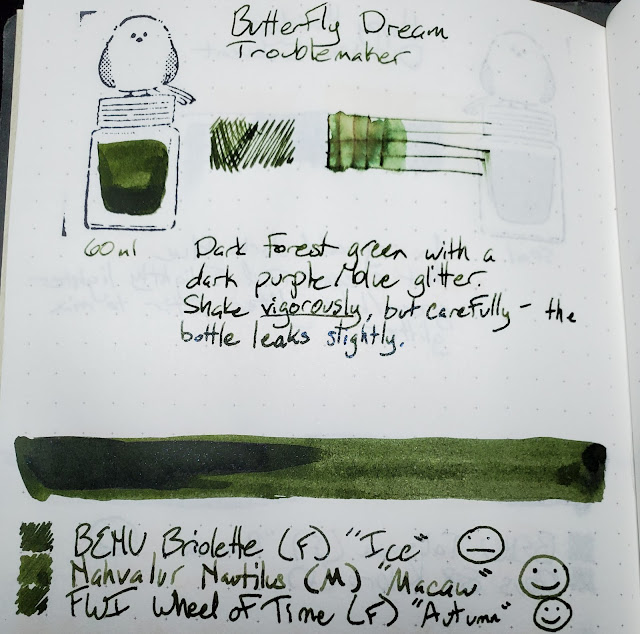 Butterfly Dream
Troublemaker
60ml
Dark forest green with a
dark purple/blue glitter.
Shake vigorously, but carefully - the
bottle leaks slightly.
BEMU Briolette (F) "Ice"
Nahvalur Nautilus (M) "Macaw"
FWI Wheel of Time (F) "Autumn"